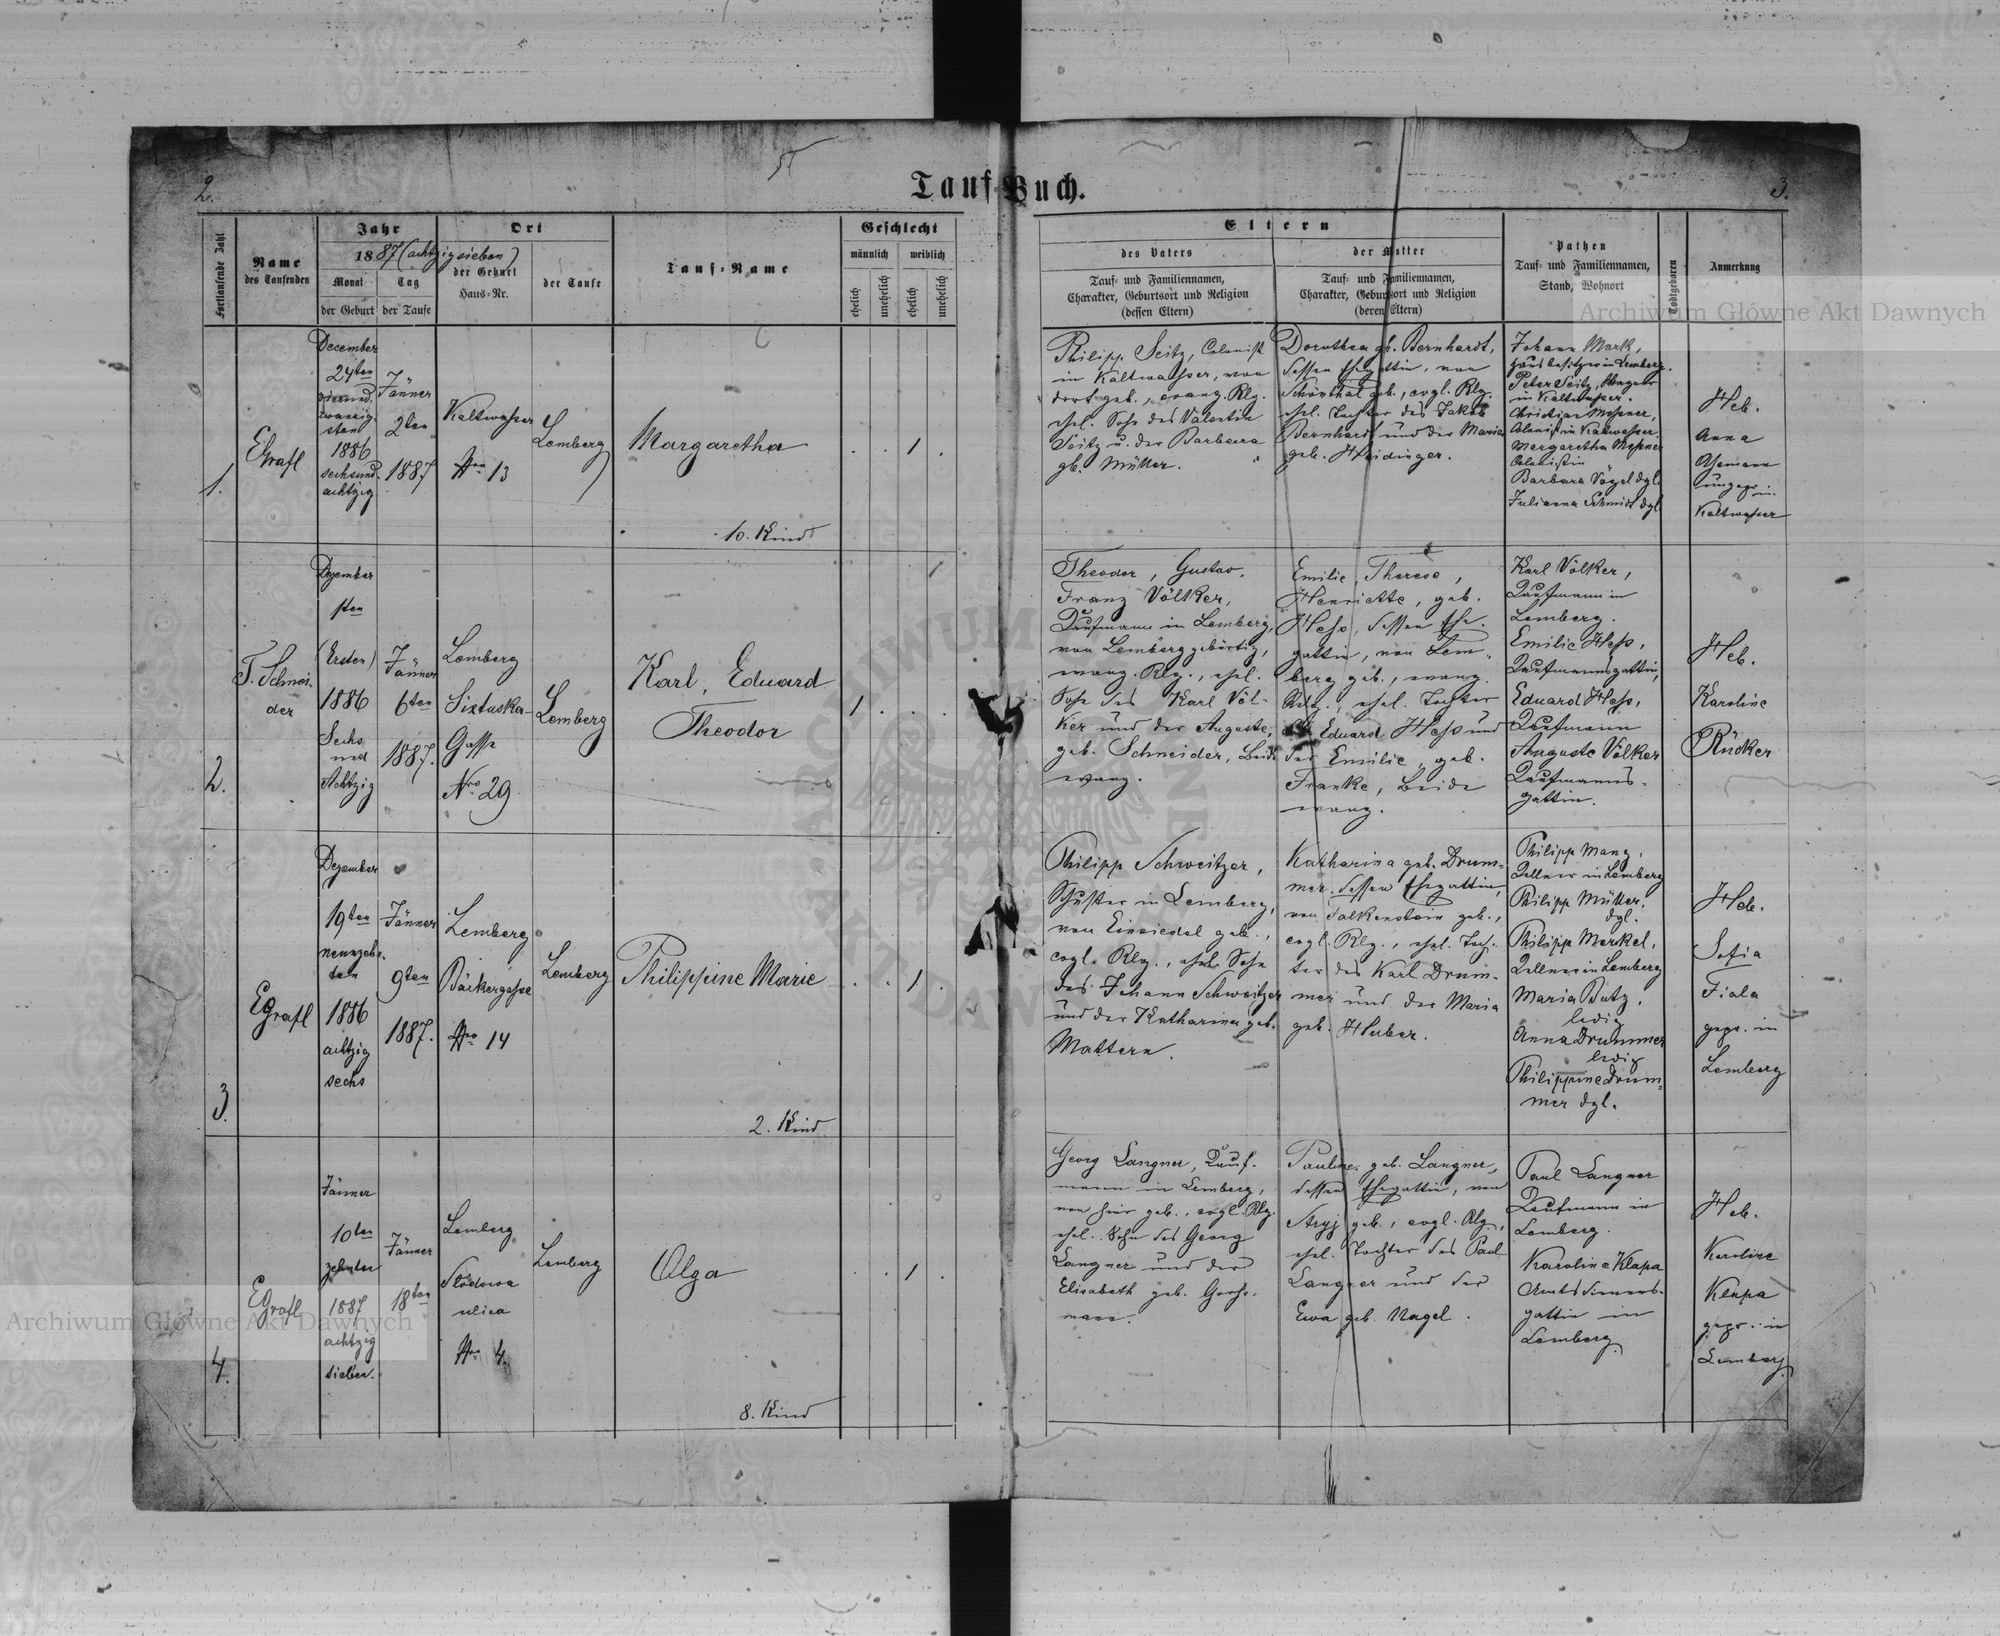 2.
5
Tauf-Buch.
3.
Fortlaufende Zahl
Name
des Taufenden
Jahr
1887 (achtzigsieben)
Monat
der Geburt
Tag
der Taufe
Ort
der Geburt
Haus-Nr.
der Taufe
Tauf-Name
Geschlecht
männlich
weiblich
ehelich
unehelich
ehelich
unehelich
Eltern
des Vaters
Tauf- und Familiennamen,
Charakter, Geburtsort und Religion
(dessen Eltern)
der Mutter
Tauf- und Familiennamen,
Charakter, Geburtsort und Religion
(deren Eltern)
Pathen
Tauf- und Familiennamen,
Stand, Wohnort
Todtgeboren
Anmerkung
Archiwum Główne Akt Dawnych
1.
EGrafl
December
24ten
vierund-
zwanzig-
sten
1886
sechsund-
achtzig
Jänner
2ten
1887
Kaltwasser
Nro 13
Lemberg
Margaretha
10. Kind
1
Philipp Seitz, Colonist
in Kaltwasser, von
dort geb., evang. Rlg.
ehel. Sohn des Valentin
Seitz u. der Barbara
gb. Müller.
Dorothea gb. Bernhardt,
dessen Ehegattin, von
Schönthal geb., evgl. Rlg.
ehel. Tochter des Jakob
Bernhardt und der Maria
geb. Heidinger.
Johann Mark,
Hausbesitzer in Lemberg.
Peter Seitz,
in Kaltwasser.
Christian Messner,
Colonist in Kaltwasser.
Margaretha Messner
Colonistin
Barbara Vögel dgl.
Julianna Schmidt dgl.
Heb.
Anna
ungepr. in
Kaltwasser
2.
T. Schnei-
der
Dezember
1ten
(Ersten)
1886
Sechs
und
Achtzig
Jänner
6ten
1887.
Lemberg
Sixtuska-
Gasse
Nro 29
Lemberg
Karl, Eduard
Theodor
1
Theodor, Gustav,
Franz Völker,
Kaufmann in Lemberg,
von Lemberg gebürtig,
evang. Rlg., ehel.
Sohn des Karl Völ-
ker und der Auguste,
geb. Schneider, Beide
evang.
Emilie, Therese,
Henriette, geb.
Hess, dessen Ehe-
gattin, von Lem-
berg geb., evang.
Rlg., ehel. Tochter
des Eduard Hess und
der Emilie, geb.
Franke, Beide
evang.
Karl Völker,
Kaufmann in
Lemberg.
Emilie Hess,
Kaufmannsgattin,
Eduard Hess,
Kaufmann
Auguste Völker
Kaufmanns-
gattin.
Heb.
Karoline
Rücker
3.
EGrafl
Dezember
19ten
neunzehn-
ten
1886
achtzig
sechs
Jänner
9ten
1887.
Lemberg
Bäckergasse
Nro 14
Lemberg
Philippine Marie
2. Kind
1
Philipp Schweitzer,
Schuster in Lemberg,
von Einsiedel geb.,
evgl. Rlg., ehel. Sohn
des Johann Schweitzer
und der Katharina geb.
Mattern.
Katharina geb. Drum-
mer, dessen Ehegattin,
von Falkenstein geb.,
evgl. Rlg., ehel. Toch-
ter des Karl Drum-
mer und der Maria
geb. Huber.
Philipp Manz,
Kellner in Lemberg
Philipp Müller,
dgl.
Philipp Merkel,
Kellner in Lemberg
Maria Butz,
ledig
Anna Drummer
ledig
Philippine Drum-
mer dgl.
Heb.
Sofia
Fiala
gepr. in
Lemberg
4.
EGrafl
Jänner
10ten
zehnter
1887
achtzig
sieben.
Jänner
18ten
Lemberg
Słodowa
ulica
Nro 4.
Lemberg
Olga
8. Kind
1
Georg Langner, Kauf-
mann in Lemberg,
von hier geb., evgl. Rlg.
ehel. Sohn des Georg
Langner und der
Elisabeth geb. Gross-
mann.
Pauline, geb. Langner,
dessen Ehegattin, von
Stryj geb., evgl. Rlg.,
ehel. Tochter des Paul
Langner und der
Ewa geb. Nagel.
Paul Langner
Kaufmann in
Lemberg.
Karoline Klapa
Amtsdieners-
gattin in
Lemberg.
Heb.
Karoline
Klapa
gepr. in
Lemberg
Archiwum Główne Akt Dawnych
ARCHIWUM GŁÓWNE AKT DAWNYCH